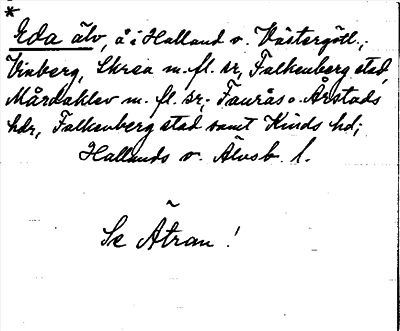 *
Eda älv, å i Halland o. Västergötl.;
Vinberg, Skrea m. fl. sr, Falkenberg stad,
Mårdaklev m. fl. sr; Faurås o. Årstads
hdr, Falkenberg stad samt Kinds hd;
Hallands o. Älvsb. l.
Se Ätran!